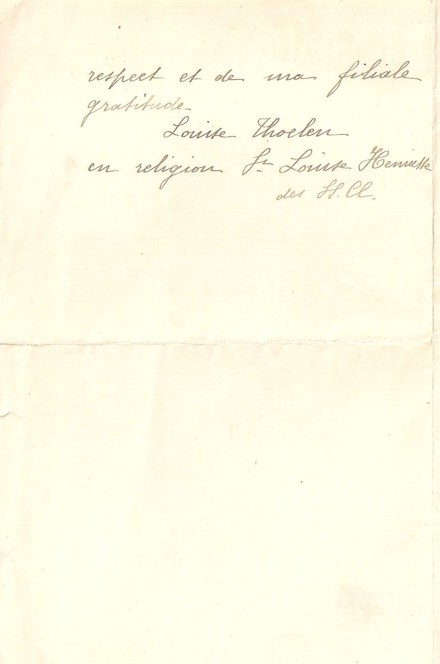 respect et de ma filiale
gratitude
Louise Thoelen
en religion Sr Louise Henriette
des SS. CC.